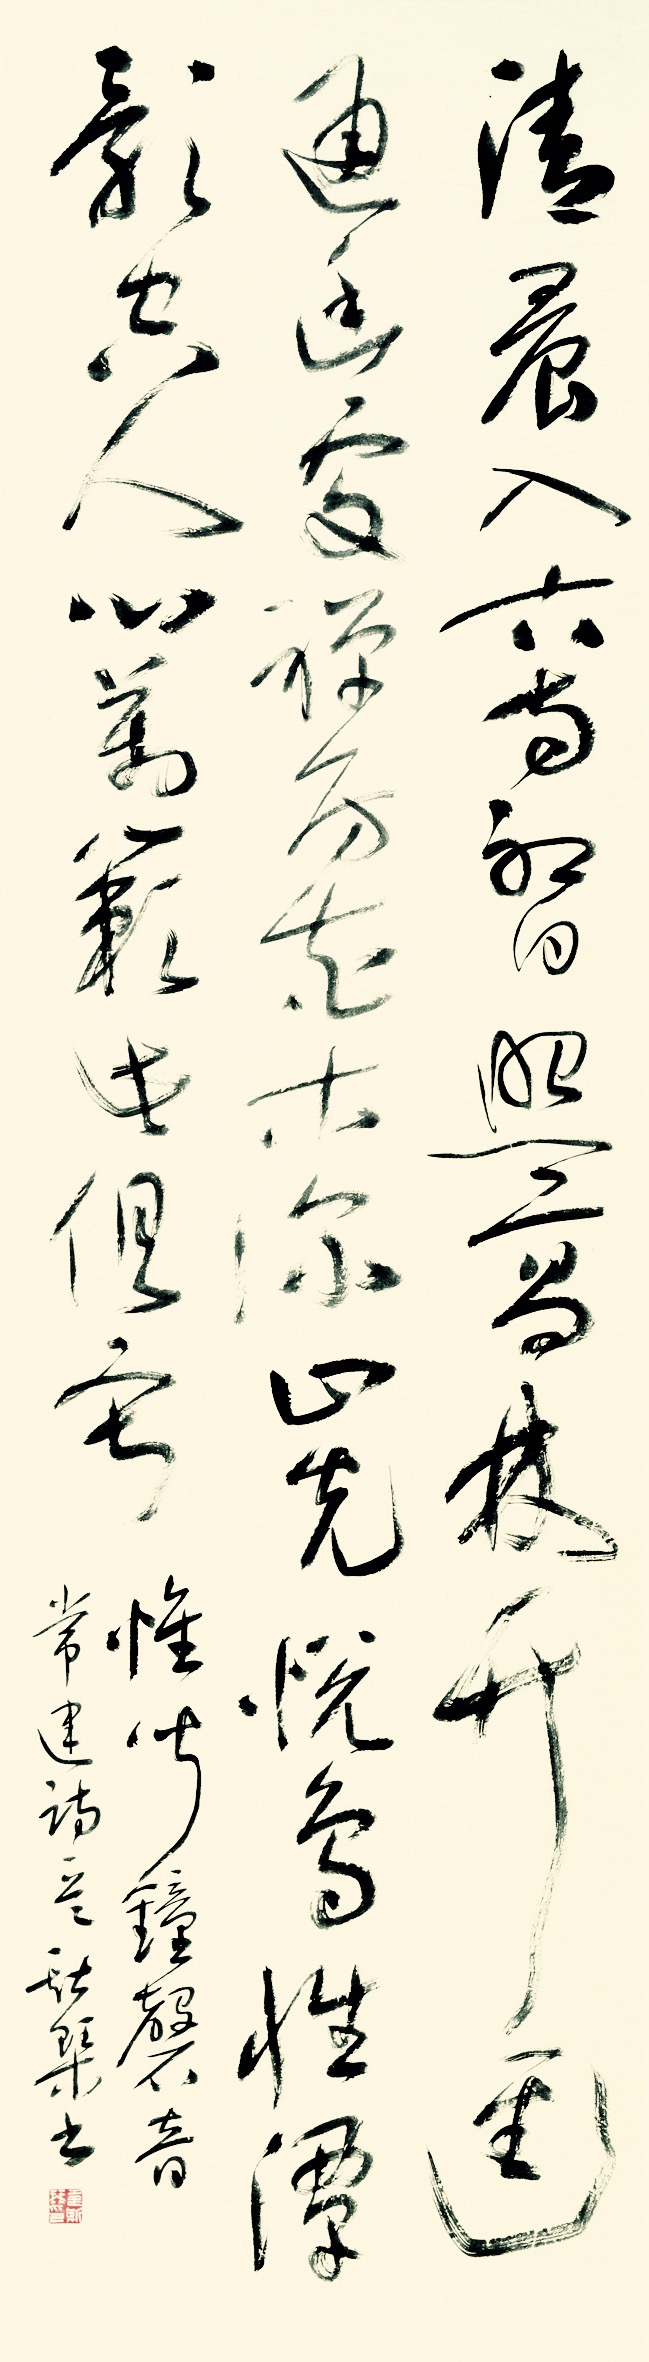 清晨入古寺初日照高林竹逕
通幽處禪房花木深山光悦鳥性潭
影空人心萬籟此俱寂
惟聞鐘磬音
常建詩意书